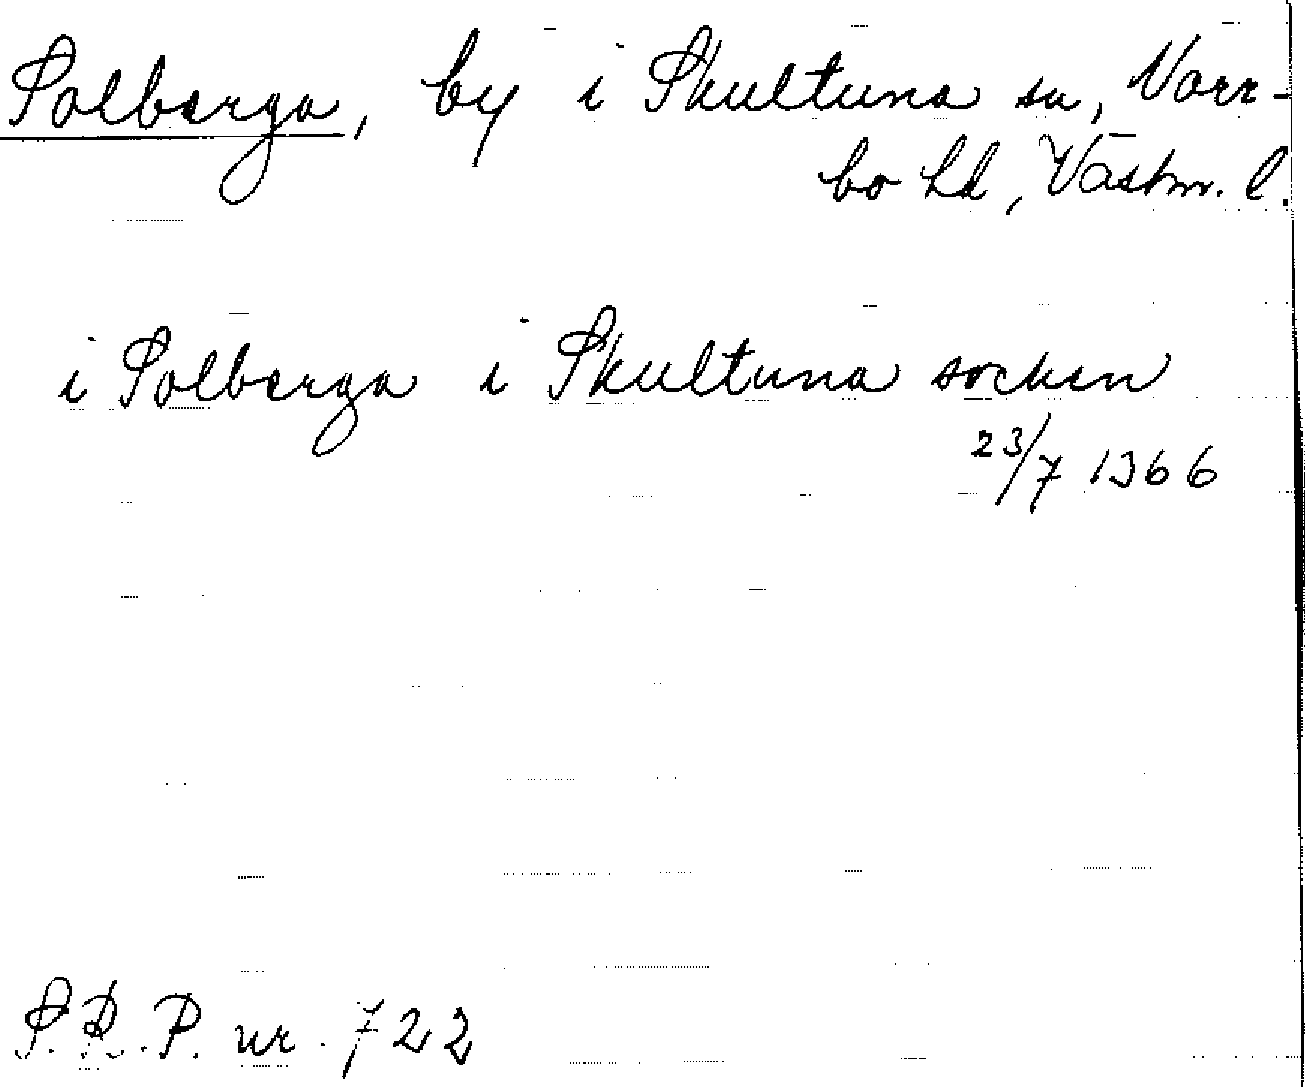 Solberga, by i Skultuna sn, Norr-
bo hd, Västm. l.
i Solberga i Skultuna socken
23/7 1366
S.R.P. nr. 722